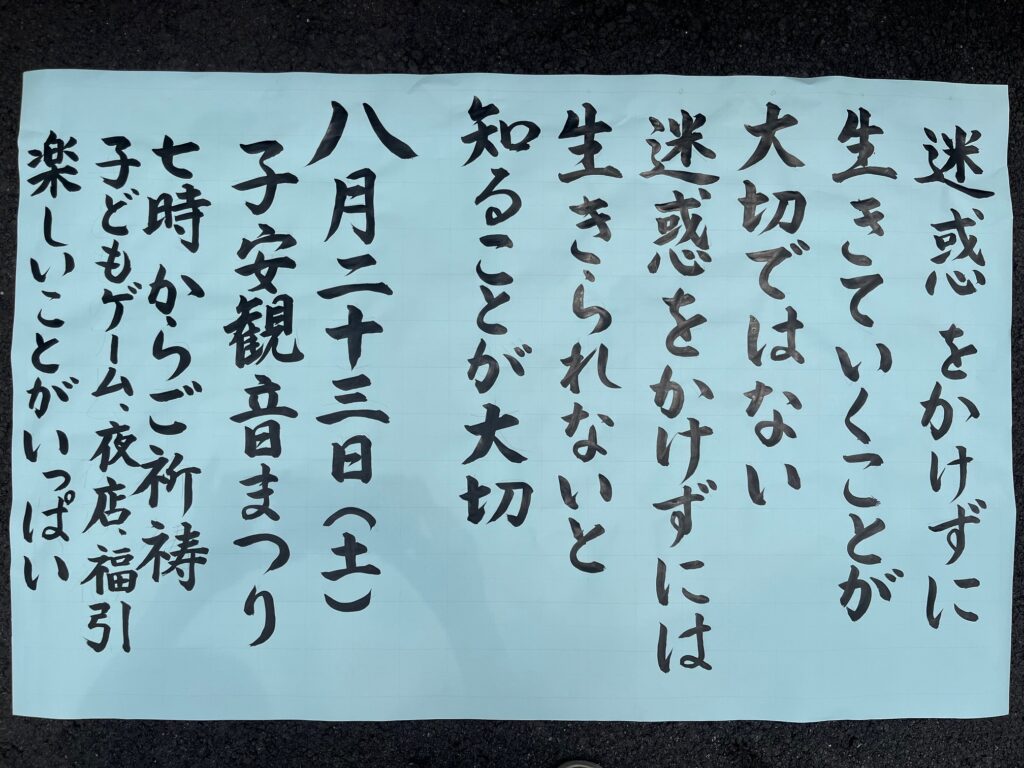 迷惑をかけずに
生きていくことが
大切ではない
迷惑をかけずには
生きられないと
知ることが大切
八月二十三日(土)
子安観音まつり
七時からご祈祷
子どもゲーム、夜店、福引
楽しいことがいっぱい